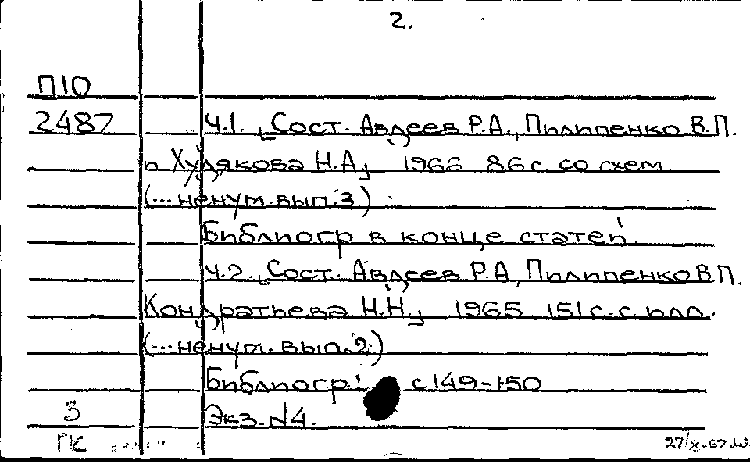 2.
П10
2487 Ч.1. [Сост. Авдеев Р.А., Пилипенко В.П.
и Худякова Н.А.] 1966 86 с. со схем.
(...ненум. вып. 3)
Библиогр в конце статей.
Ч.2. [Сост. Авдеев Р.А., Пилипенко В.П.
Кондратьева Н.Н.] 1965 151 с. с илл.
(...ненум. вып. 2)
Библиогр: с 149-150
3 Экз. N4.
ГК 27/X-67